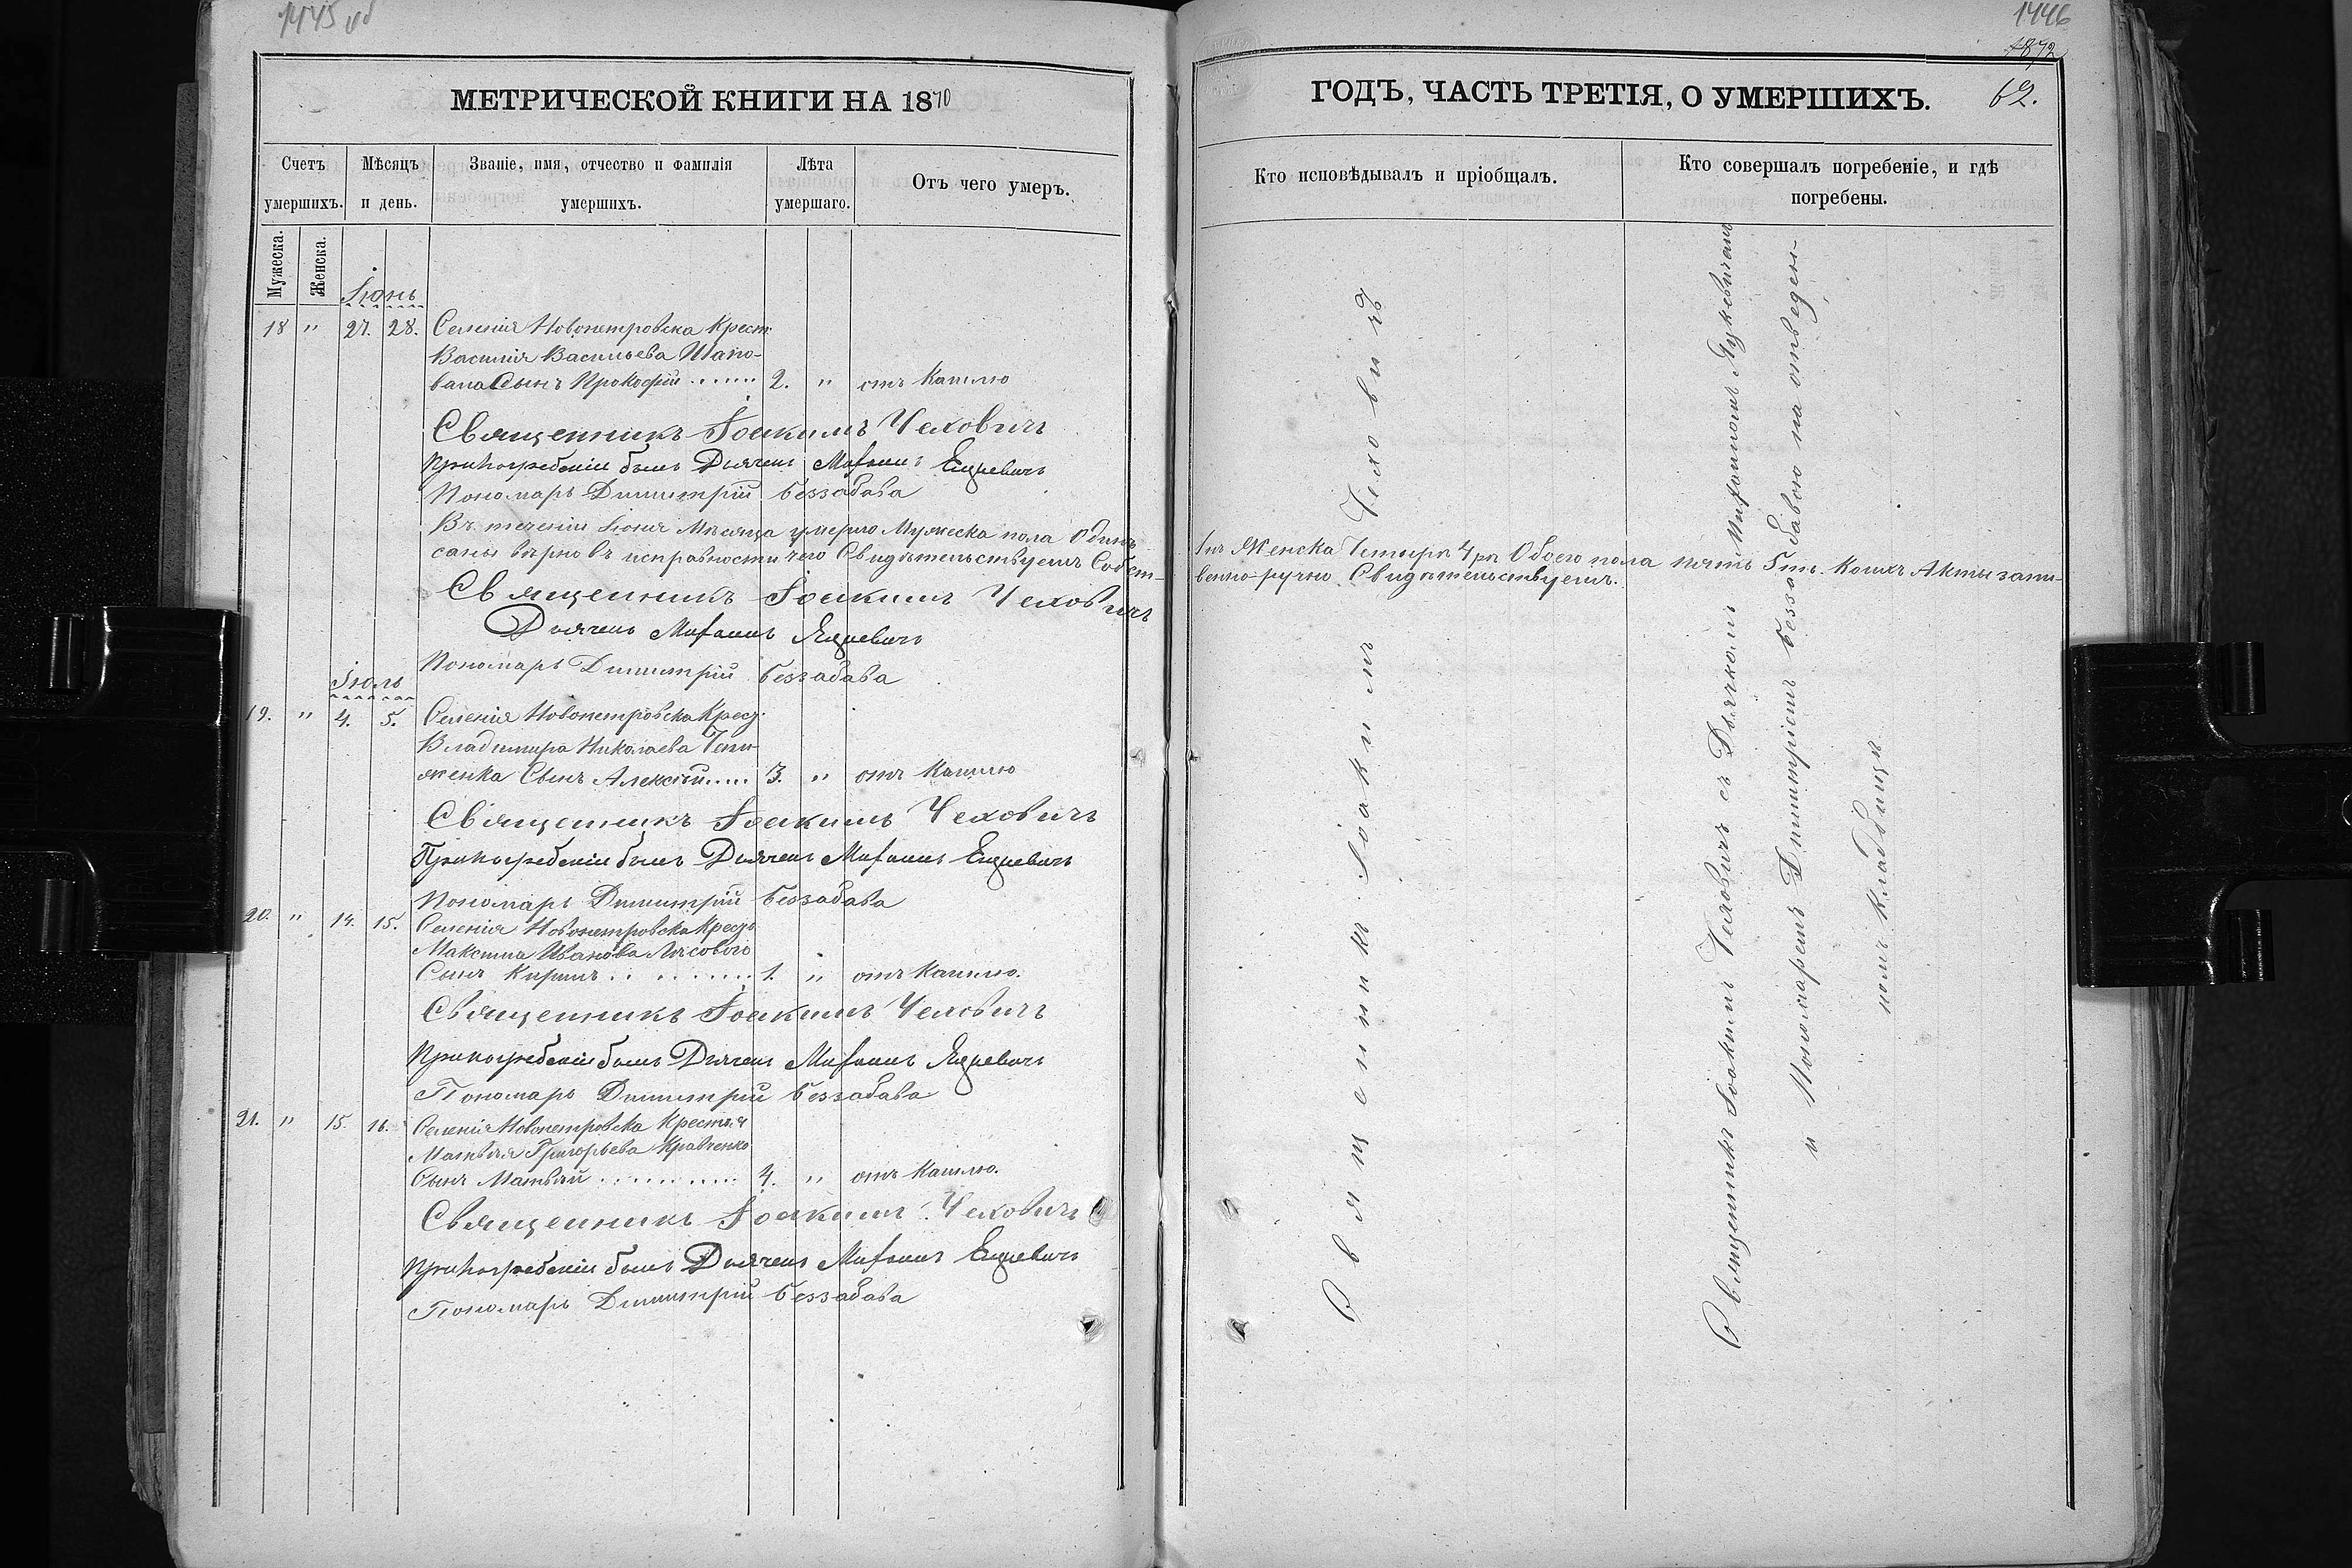 1445 об
МЕТРИЧЕСКОЙ КНИГИ НА 1870
Счетъ умершихъ.
Мѣсяцъ и день.
Званіе, имя, отчество и фамилія умершихъ.
Лѣта умершаго.
Отъ чего умеръ.
Мужеска.
Женска.
Іюнь
18 " 27. 28. Селенія Новопетровска Крест.
Василія Васильева Шапо-
вала Сынъ Прокофій 2. " отъ Кашлю
Священникъ Іоакимъ Чеховичъ
При погребеніи былъ Дьячекъ Яцкевичъ
Пономарь Димитрій Беззабава
Въ теченіи Іюня Мѣсяца умерло Мужеска пола Одинъ
саны вѣрно въ исправности чего Свидѣтельствуемъ Собст-
Священникъ Іоакимъ Чеховичъ
Дьячекъ Яцкевичъ
Пономарь Димитрій Беззабава
Іюль
19. " 4. 5. Селенія Новопетровска Крес.
Владимира Николаева
женка Сынъ Алексѣй 3. " отъ Кашлю
Священникъ Іоакимъ Чеховичъ
При погребеніи былъ Дьячекъ Яцкевичъ
Пономарь Димитрій Беззабава
20. " 14. 15. Селенія Новопетровска Крес.
Максима Иванова Лѣсового
Сынъ Кирилъ 1. " отъ Кашлю.
Священникъ Іоакимъ Чеховичъ
При погребеніи былъ Дьячекъ Яцкевичъ
Пономарь Димитрій Беззабава
21. " 15. 16. Селенія Новопетровска Крестья
Матвѣя Григорьева Кравченко
Сынъ Матвѣй 4. " отъ Кашлю.
Священникъ Іоакимъ Чеховичъ
При погребеніи былъ Дьячекъ Яцкевичъ
Пономарь Димитрій Беззабава
1446
1872
ГОДЪ, ЧАСТЬ ТРЕТІЯ, О УМЕРШИХЪ.
62.
Кто исповѣдывалъ и пріобщалъ.
Кто совершалъ погребеніе, и гдѣ
погребены.
1нъ Женска Четыре 4ре Обоего пола пять 5ть. Коихъ Акты запи-
венно-ручно Свидѣтельствуемъ.
Священникъ Іоакимъ Чеховичъ
Священникъ Іоакимъ Чеховичъ съ Дьячкомъ Яцкевичемъ
и Пономаремъ Димитріемъ Беззабавою на отведен-
номъ Кладбищѣ